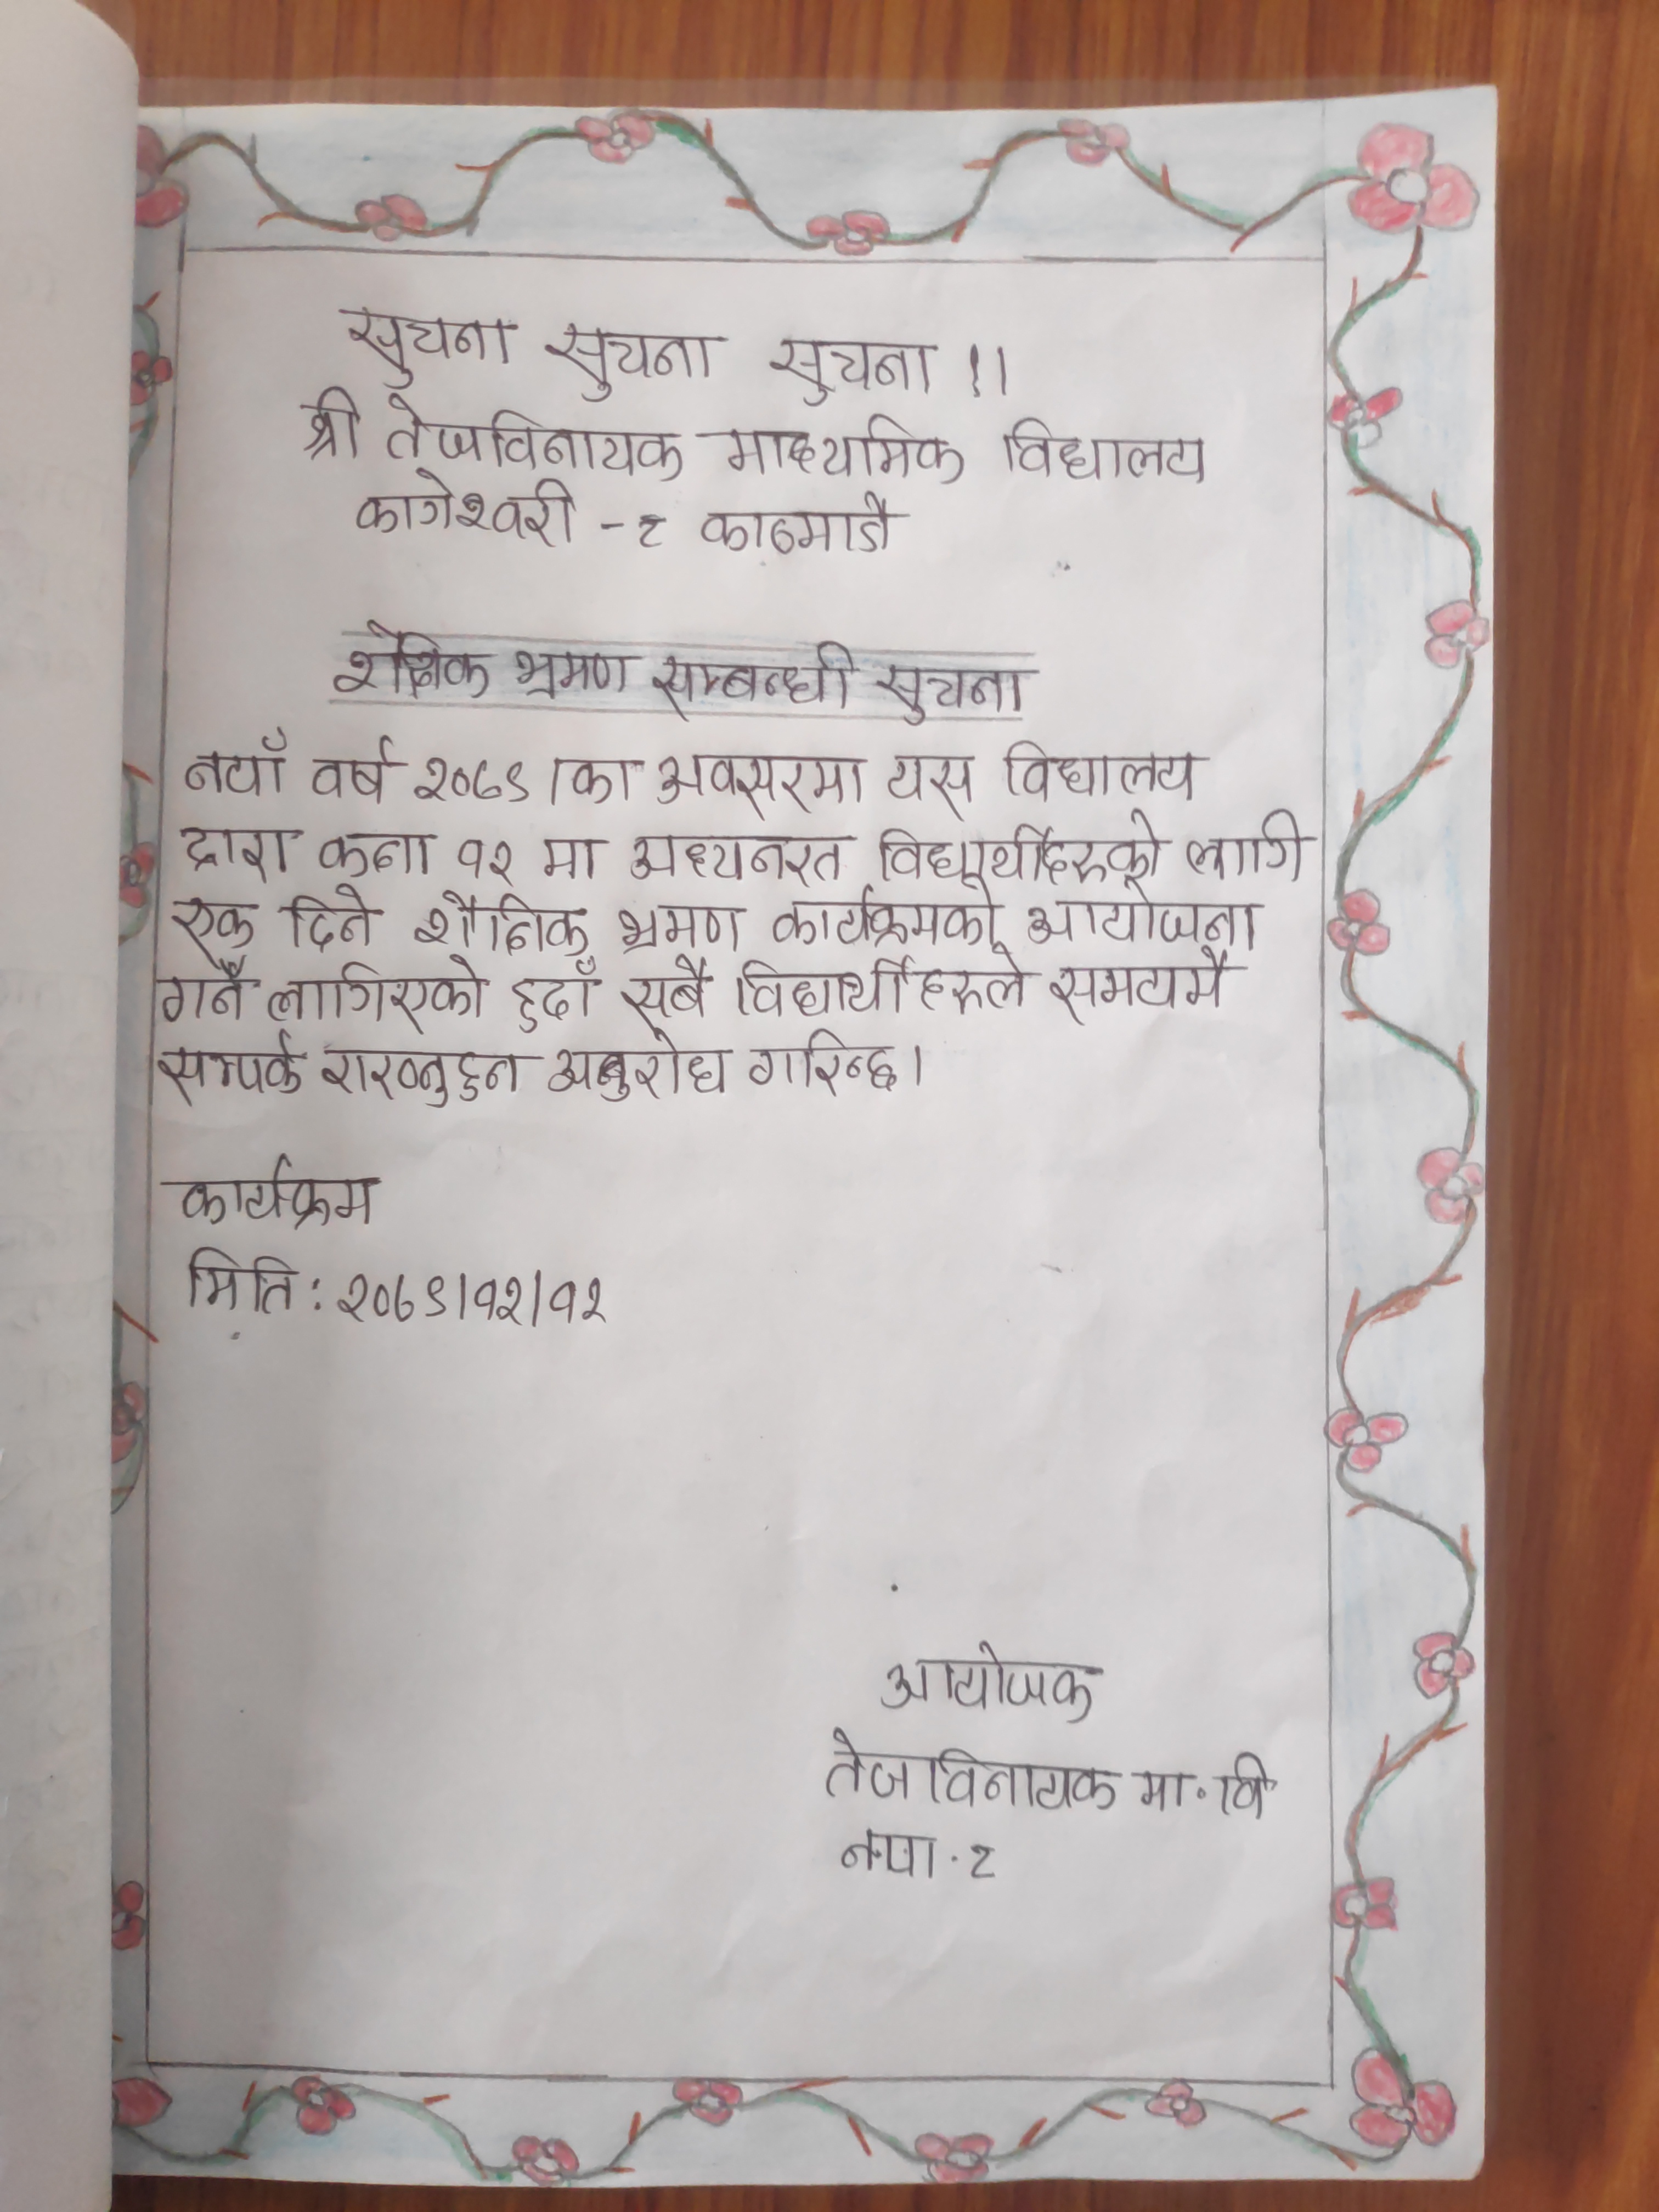 सुचना सुचना सुचना !।
श्री तेजविनायक माध्यमिक विद्यालय
कागेश्वरी -८ काठमाडौ
शैक्षिक भ्रमण सम्बन्धी सुचना
नयाँ वर्ष २०७९ ।का अवसरमा यस विद्यालय
द्वारा कक्षा १२ मा अध्यनरत विद्यार्थीहरुको लागि
एक दिने शैक्षिक भ्रमण कार्यक्रमको आयोजना
गर्न लागिएको हुदाँ सबै विद्यार्थीहरुले समयमै
सम्पर्क राख्नुहुन अनुरोध गरिन्छ।
कार्यक्रम
मिति : २०७९।१२।१२
आयोजक
तेजविनायक मा.वि
न.पा.८